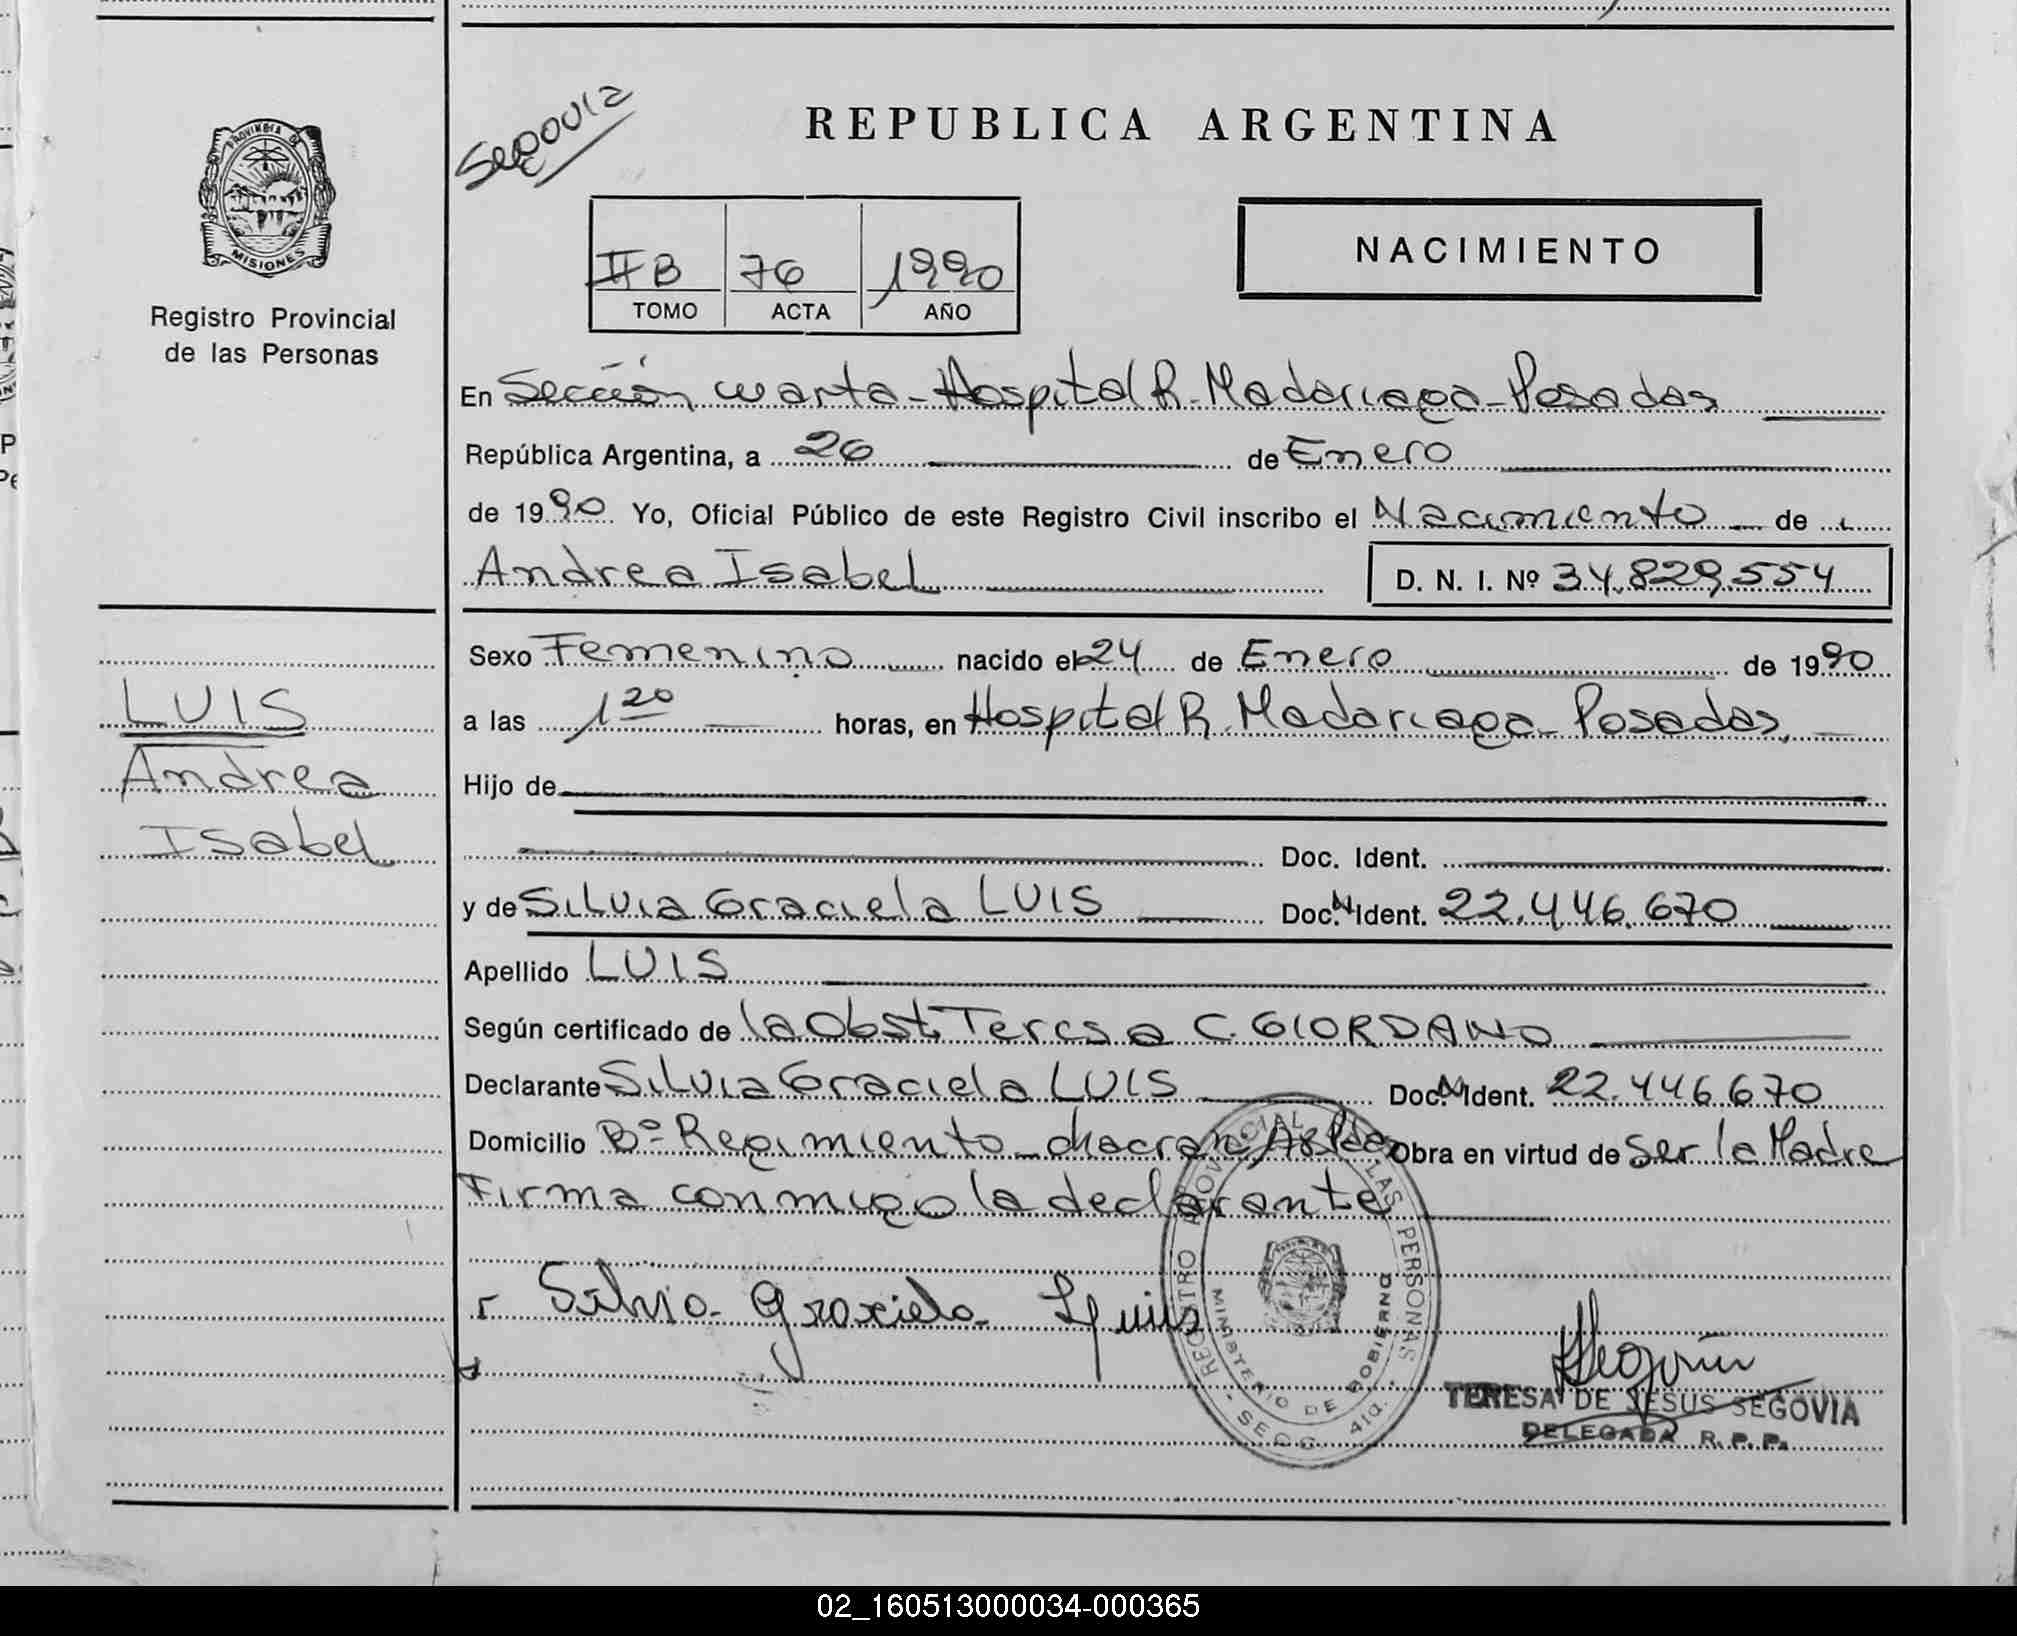 Segovia
REPUBLICA ARGENTINA
PROVINCIA DE
MISIONES
Registro Provincial
de las Personas
II B 76 1990
TOMO ACTA AÑO
NACIMIENTO
En Sección cuarta - Hospital R. Madariaga - Posadas
República Argentina, a 26 de Enero
de 1990 Yo, Oficial Público de este Registro Civil inscribo el Nacimiento de
Andrea Isabel D. N. I. Nº 34.829.554
Sexo Femenino nacido el 24 de Enero de 1990
a las 1 20 horas, en Hospital R. Madariaga - Posadas
Hijo de
Doc. Ident.
y de Silvia Graciela LUIS Doc. N Ident. 22.446.670
Apellido LUIS
Según certificado de la Obst. Teresa C. GIORDANO
Declarante Silvia Graciela LUIS Doc. N Ident. 22.446.670
Domicilio Bº Regimiento - chacra Obra en virtud de Ser la Madre
Firma conmigo la declarante
LUIS
Andrea
Isabel
Silvia Graciela Luis
REGISTRO PROVINCIAL DE LAS PERSONAS
MINISTERIO DE GOBIERNO
- SECC. 4ta. -
Segovia
TERESA DE JESUS SEGOVIA
DELEGADA R. P. P.
02_160513000034-000365